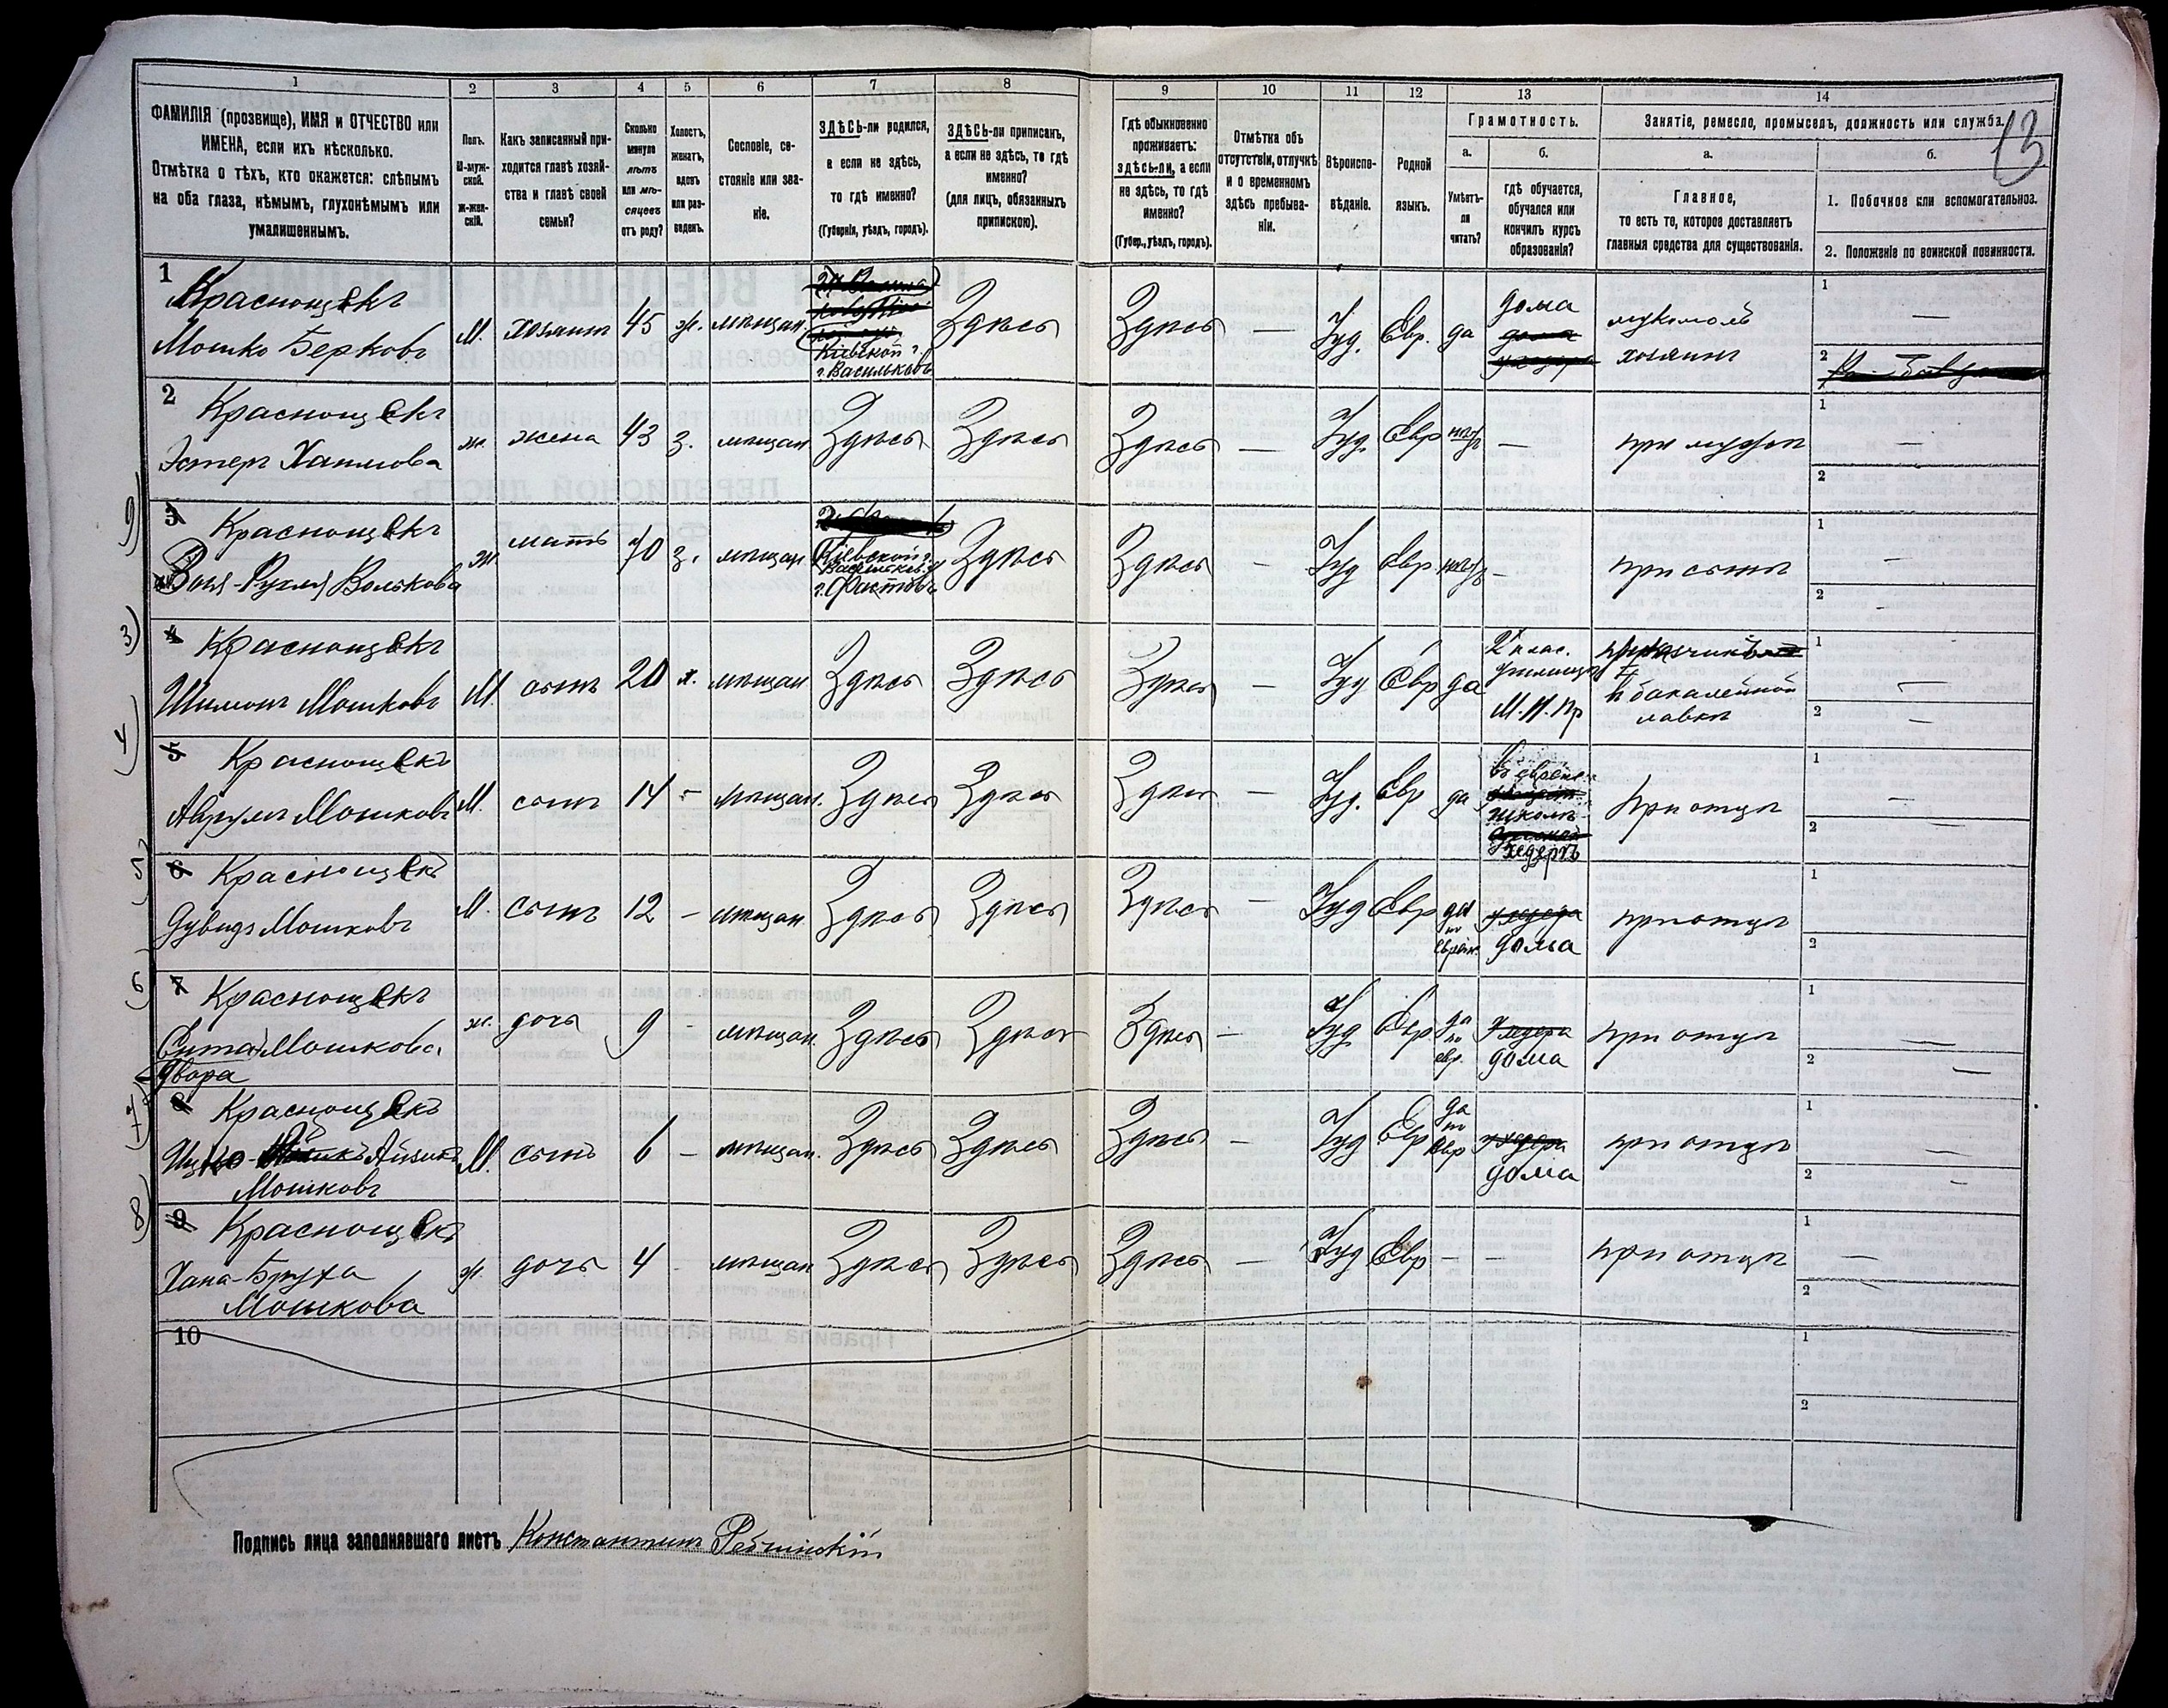 1 2 3 4 5 6 7 8 9 10 11 12 13 14
13
ФАМИЛІЯ (прозвище), ИМЯ и ОТЧЕСТВО или
ИМЕНА, если ихъ нѣсколько.
Отмѣтка о тѣхъ, кто окажется: слѣпымъ
на оба глаза, нѣмымъ, глухонѣмымъ или
умалишеннымъ.
Полъ.
М-муж-
ской.
ж-жен-
скій.
Какъ записанный при-
ходится главѣ хозяй-
ства и главѣ своей
семьи?
Сколько
минуло
лѣтъ
или мѣ-
сяцевъ
отъ роду?
Холостъ,
женатъ,
вдовъ
или раз-
веденъ.
Сословіе, со-
стояніе или зва-
ніе.
ЗДѢСЬ-ли родился,
а если не здѣсь,
то гдѣ именно?
(Губернія, уѣздъ, городъ).
ЗДѢСЬ-ли приписанъ,
а если не здѣсь, то гдѣ
именно?
(для лицъ, обязанныхъ
припискою).
Гдѣ обыкновенно
проживаетъ:
здѣсь-ли, а если
не здѣсь, то гдѣ
именно?
(Губер., уѣздъ, городъ).
Отмѣтка объ
отсутствіи, отлучкѣ
и о временномъ
здѣсь пребыва-
ніи.
Вѣроиспо-
вѣданіе.
Родной
языкъ.
Грамотность.
а.
Умѣетъ-
ли
читать?
б.
гдѣ обучается,
обучался или
кончилъ курсъ
образованія?
Занятіе, ремесло, промыселъ, должность или служба.
а.
Главное,
то есть то, которое доставляетъ
главныя средства для существованія.
б.
1. Побочное или вспомогательное.
2. Положеніе по воинской повинности.
1
Краснощекъ
Мошко Берковъ
М. хозяинъ 45 ж. мѣщан.
Кіевской г.
г. Васильковъ
Здѣсь Здѣсь — Іуд. Евр. да
дома
мукомолъ
хозяинъ
1 —
2
2
Краснощекъ
Эстеръ Хаимова
ж. жена 43 з. мѣщан Здѣсь Здѣсь Здѣсь — Іуд. Евр нѣтъ — при мужѣ
1 —
2
9)
3
Краснощекъ
Рухля Волькова
ж мать 70 з. мѣщан
Кіевской г.
Васильков. у
г. Фастовъ
Здѣсь Здѣсь — Іуд Евр нѣтъ — при сынѣ
1 —
2 —
3)
4
Краснощекъ
Шимонъ Мошковъ
М. сынъ 20 х. мѣщан Здѣсь Здѣсь Здѣсь — Іуд Евр да
2 клас.
училище
М. Н. Пр
приказчикъ
въ бакалейной
лавкѣ
1 —
2 —
4)
5
Краснощекъ
Аврумъ Мошковъ
М. сынъ 14 - мѣщан. Здѣсь Здѣсь Здѣсь — Іуд. Евр да
школѣ
Хедеръ
при отцѣ
1 —
2
5)
6
Краснощекъ
Дувидъ Мошковъ
М. сынъ 12 - мѣщан. Здѣсь Здѣсь Здѣсь — Іуд Евр да
по
еврейс.
дома
при отцѣ
1
2
6)
7
Краснощекъ
Мошкова
Двора
ж. дочь 9 - мѣщан. Здѣсь Здѣсь Здѣсь — Іуд Евр да
по
евр.
дома
при отцѣ
1
2 —
7)
8
Краснощекъ
Ицко- Айзикъ
Мошковъ
М. сынъ 6 - мѣщан. Здѣсь Здѣсь Здѣсь — Іуд Евр да
по
евр
дома
при отцѣ
1 —
2 —
8)
9
Краснощекъ
Хана-Бруха
Мошкова
ж. дочь 4 - мѣщан Здѣсь Здѣсь Здѣсь — Іуд Евр - - при отцѣ
1 —
2
10
1
2
Подпись лица заполнявшаго листъ Константинъ